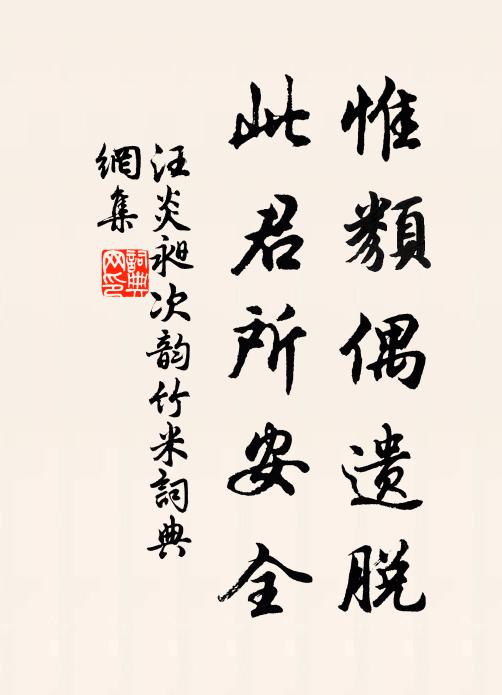 惟類偶遺脫
此君所安全
汪炎昶次韵竹米詞典
網集
詞典网印